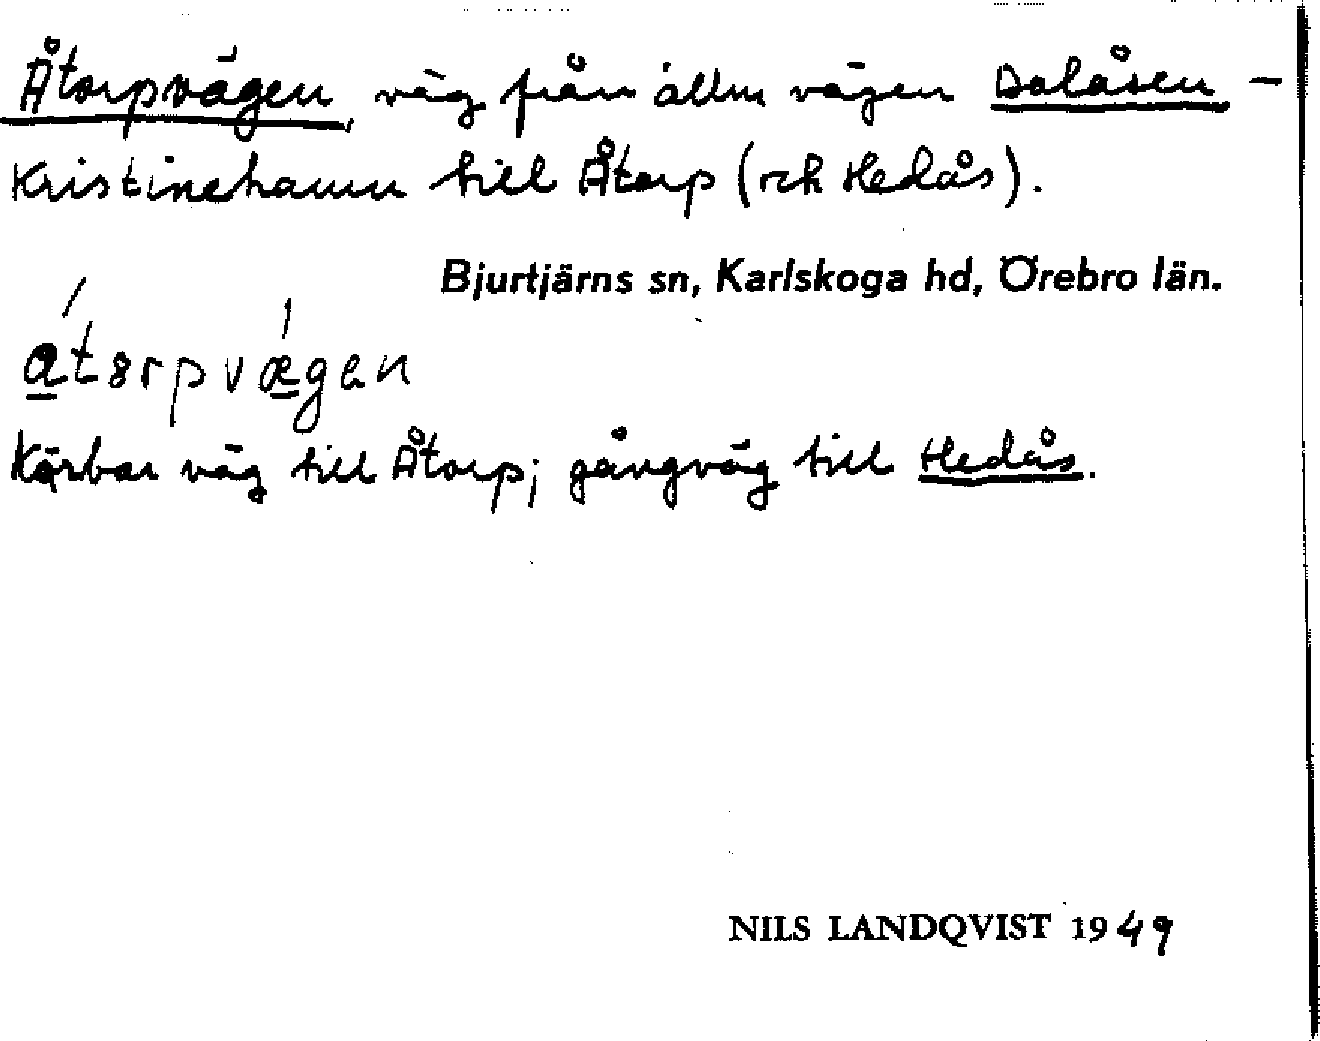 Åtorpvägen, väg från allm vägen Dalåsen -
Kristinehamn till Åtorp (och Hedås).
Bjurtjärns sn, Karlskoga hd, Örebro län.
Körbar väg till Åtorp; gångväg till Hedås.
NILS LANDQVIST 1949